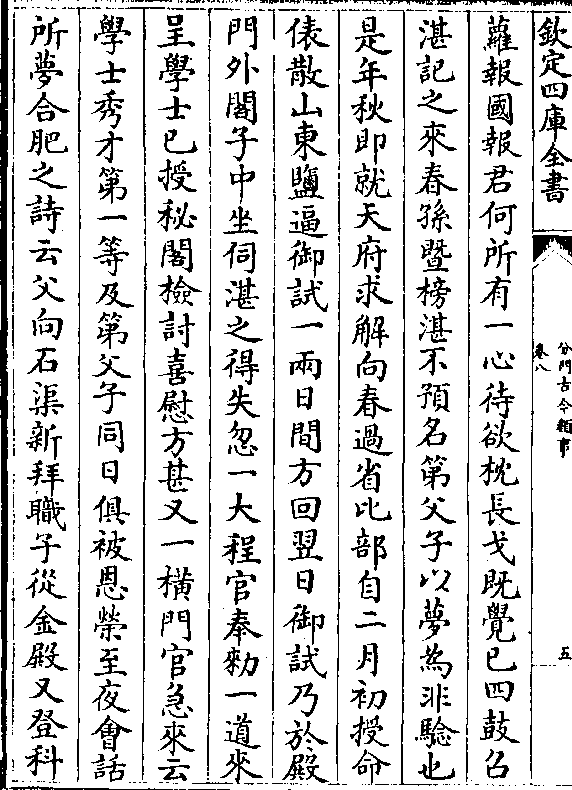 欽定四庫全書
分門古今類事
卷八
五
蘿報國報君何所有一心待欲枕長戈既覺已四鼓召
湛記之來春孫暨榜湛不預名第父子以夢為非驗也
是年秋即就天府求解向春過省比部自二月初授命
俵散山東鹽逼御試一兩日間方回翌日御試乃於殿
門外閣子中坐伺湛之得失忽一大程官奉勑一道來
呈學士已授秘閣檢討喜慰方甚又一橫門官急來云
學士秀才第一等及第父子同日俱被恩榮至夜㑹話
所夢合肥之詩云父向石渠新拜職子從金殿又登科